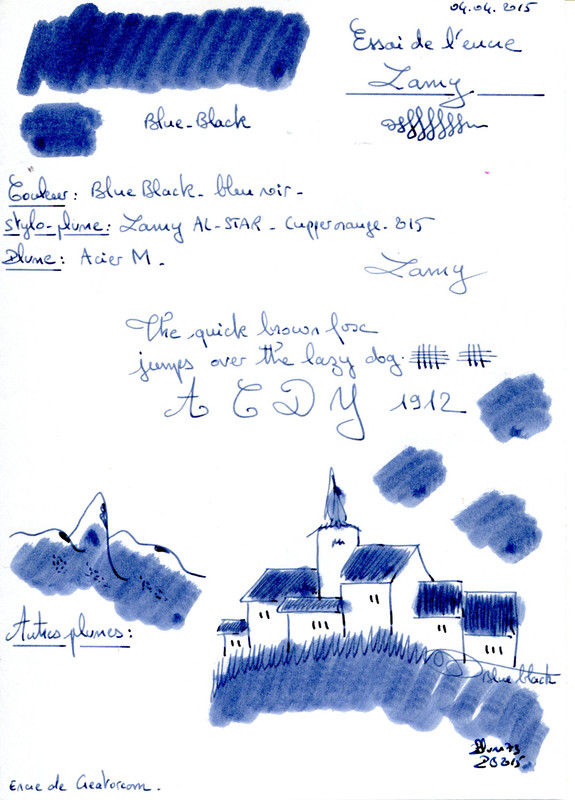 04.04.2015
Essai de l'encre
Lamy
Blue-Black
Couleur: Blue Black - bleu noir -
Stylo-plume: Lamy AL-STAR - Cupper orange - 2015
Plume: Acier M -
Lamy
The quick brown fox
jumps over the lazy dog.
A C D Y 1912
Autres plumes:
Blue black
2015
Encre de Creatorcom.